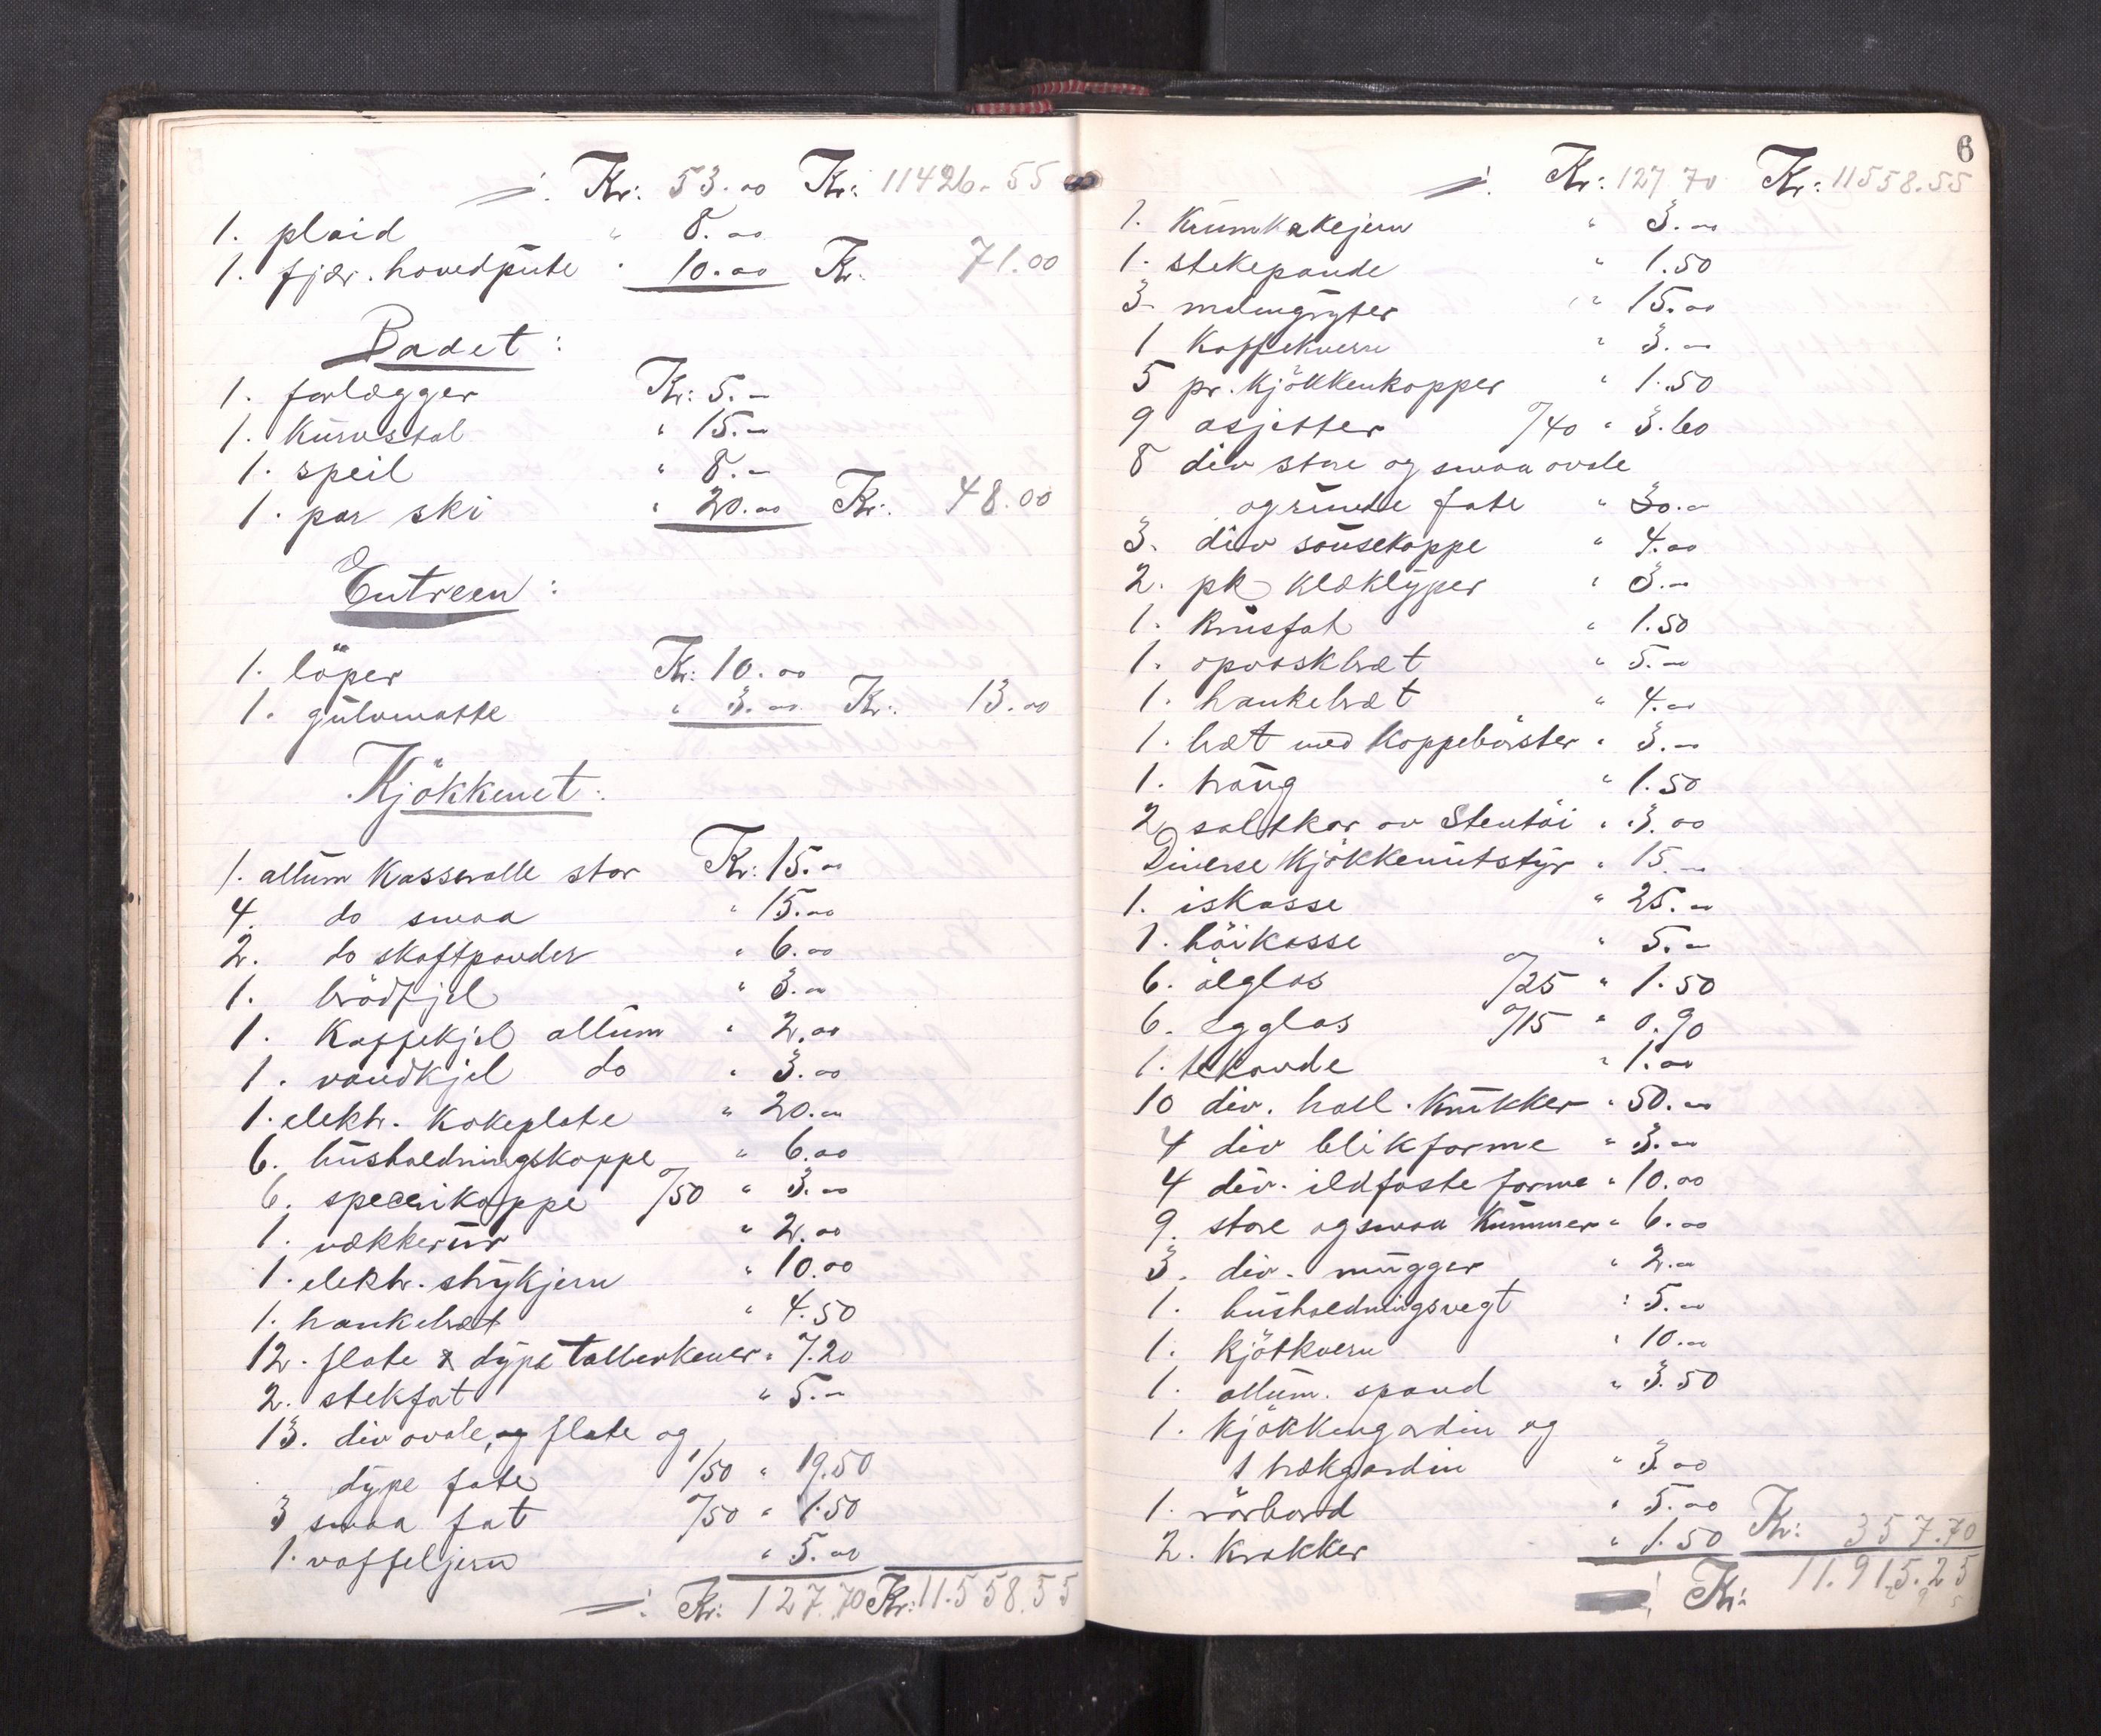 ÷. Kr: 53.00 Kr: 11426.55
1. plaid " 8.00
1. fjær. hovedpute " 10.00 Kr. 71.00
Badet:
1. forlægger Kr: 5.-
1. kurvstol " 15.-
1. speil " 8.-
1. par ski " 20.00 Kr: 48.00
Entreen:
1. löper Kr: 10.00
1. gulvmatte " 3.00 Kr: 13.00
Kjökkenet:
1. allum Kasserolle stor Kr: 15.00
4. do smaa " 15.00
2. do skaftpander " 6.00
1. brödfjel " 3.00
1. Kaffekjel allum " 2.00
1. vandkjel do " 3.00
1. elektr. kokeplate " 20.00
6. husholdningskoppe " 6.00
6. specerikoppe 0/50 " 3.00
1. vækkerur " 2.00
1. elektr. strykjern " 10.00
1. hankebræt " 4.50
12. flate & dype tallerkener " 7.20
2. stekfat " 5.-
13. div ovale, og flate og
dype fate 1/50 " 19.50
3 smaa fat 0/50 " 1.50
1. vaffeljern " 5.00
÷. Kr: 127.70 Kr: 11.558.55
6
÷. Kr: 127 70 Kr: 11558.55
1. Krumkakejern " 3.00
1. stekepande " 1.50
3 malmgryter " 15.00
1 Kaffekvern " 3.-
5 pr. kjökkenkopper " 1.50
9 asjetter 0/40 " 3.60
8 div store og smaa ovale
og runde fate " 30.-
3. div sausekoppe " 4.00
2. pk klæklyper " 3.-
1. Krusfat " 1.50
1. opvaskbræt " 5.-
1. hankebræt " 4.00
1. bræt med Koppebörster " 3.-
1. traug " 1.50
2 saltkar av Stentöi " 3.00
Diverse Kjökkenutstyr " 15.-
1. iskasse " 25.00
1. höikasse " 5.-
6. ölglas 0/25 " 1.50
6. egglas 0/15 " 0.90
1. tekande " 1.00
10 div. holl. Krukker " 50.00
4 div blikforme " 3.00
4 div. ildfaste forme " 10.00
9. store og smaa Kummer " 6.00
3. div. mugger " 2.00
1. husholdningsvegt " 5.00
1. Kjötkvern " 10.00
1. allum. spand " 3.50
1. Kjökkengardin og
1 trækgardin " 3.00
1. rörbord " 5.00
2. Krakker " 1.50 Kr: 357.70
Kr: 11.915.25